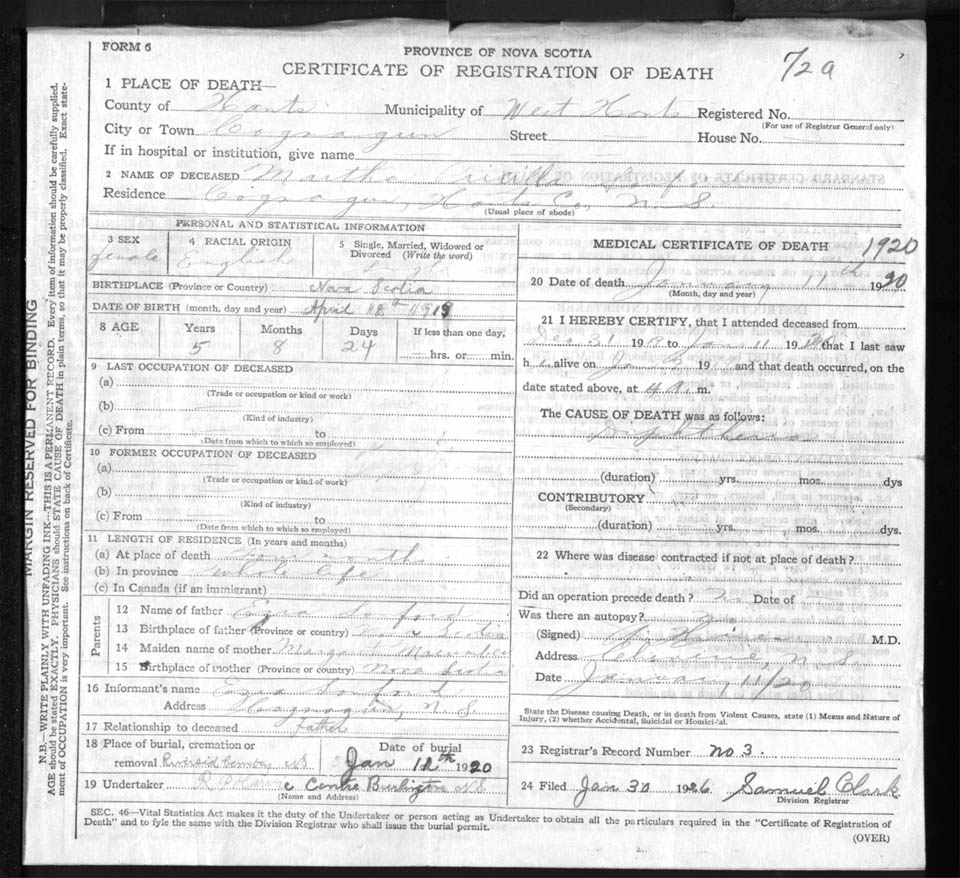 FORM 6
PROVINCE OF NOVA SCOTIA
CERTIFICATE OF REGISTRATION OF DEATH
729
1 PLACE OF DEATH—
County of Hants Municipality of West Hants Registered No.
(For use of Registrar General only)
City or Town Cogmagun Street — House No.
If in hospital or institution, give name —
2 NAME OF DECEASED Martha
Residence Cogmagun, Hants Co, N.S.
(Usual place of abode)
PERSONAL AND STATISTICAL INFORMATION
3 SEX female
4 RACIAL ORIGIN English
5 Single, Married, Widowed or Divorced (Write the word) Single
BIRTHPLACE (Province or Country) Nova Scotia
DATE OF BIRTH (month, day and year) April 18th 1919
8 AGE Years Months Days If less than one day,
5 8 24 hrs. or min.
9 LAST OCCUPATION OF DECEASED
(a)
(Trade or occupation or kind or work)
(b)
(Kind of industry)
(c) From to
(Date from which to which so employed)
10 FORMER OCCUPATION OF DECEASED
(a)
(Trade or occupation or kind of work)
(b)
(Kind of industry)
(c) From to
(Date from which to which so employed)
11 LENGTH OF RESIDENCE (In years and months)
(a) At place of death month
(b) In province whole life
(c) In Canada (if an immigrant)
Parents
12 Name of father Ezra Sanford
13 Birthplace of father (Province or country) Nova Scotia
14 Maiden name of mother Margaret
15 Birthplace of mother (Province or country) Nova Scotia
16 Informant's name Ezra Sanford
Address Cogmagun, N.S.
17 Relationship to deceased Father
18 Place of burial, cremation or Date of burial
removal Riverside NS Jan 12th 1920
19 Undertaker Centre Burlington N.S.
(Name and Address)
MEDICAL CERTIFICATE OF DEATH 1920
20 Date of death January 11th 1920
(Month, day and year)
21 I HEREBY CERTIFY, that I attended deceased from
Dec 31 1919 to Jan 11 19 that I last saw
h alive on Jan 19 and that death occurred, on the
date stated above, at 4 a. m.
The CAUSE OF DEATH was as follows:
Diphtheria
(duration) yrs. mos. dys
CONTRIBUTORY
(Secondary)
(duration) yrs. mos. dys.
22 Where was disease contracted if not at place of death?
Did an operation precede death? Date of
Was there an autopsy?
(Signed) M.D.
Address N.S.
Date January 11/20
State the Disease causing Death, or in death from Violent Causes, state (1) Means and Nature of
Injury, (2) whether Accidental, Suicidal or Homicidal.
23 Registrar's Record Number no 3.
24 Filed Jan 30 1926 Samuel Clark
Division Registrar
SEC. 46—Vital Statistics Act makes it the duty of the Undertaker or person acting as Undertaker to obtain all the particulars required in the "Certificate of Registration of
Death" and to fyle the same with the Division Registrar who shall issue the burial permit.
(OVER)
MARGIN RESERVED FOR BINDING
N.B.—WRITE PLAINLY WITH UNFADING INK—THIS IS A PERMANENT RECORD. Every item of information should be carefully supplied.
AGE should be stated EXACTLY. PHYSICIANS should STATE CAUSE OF DEATH in plain terms, so that it may be properly classified. Exact state-
ment of OCCUPATION is very important. See instructions on back of Certificate.